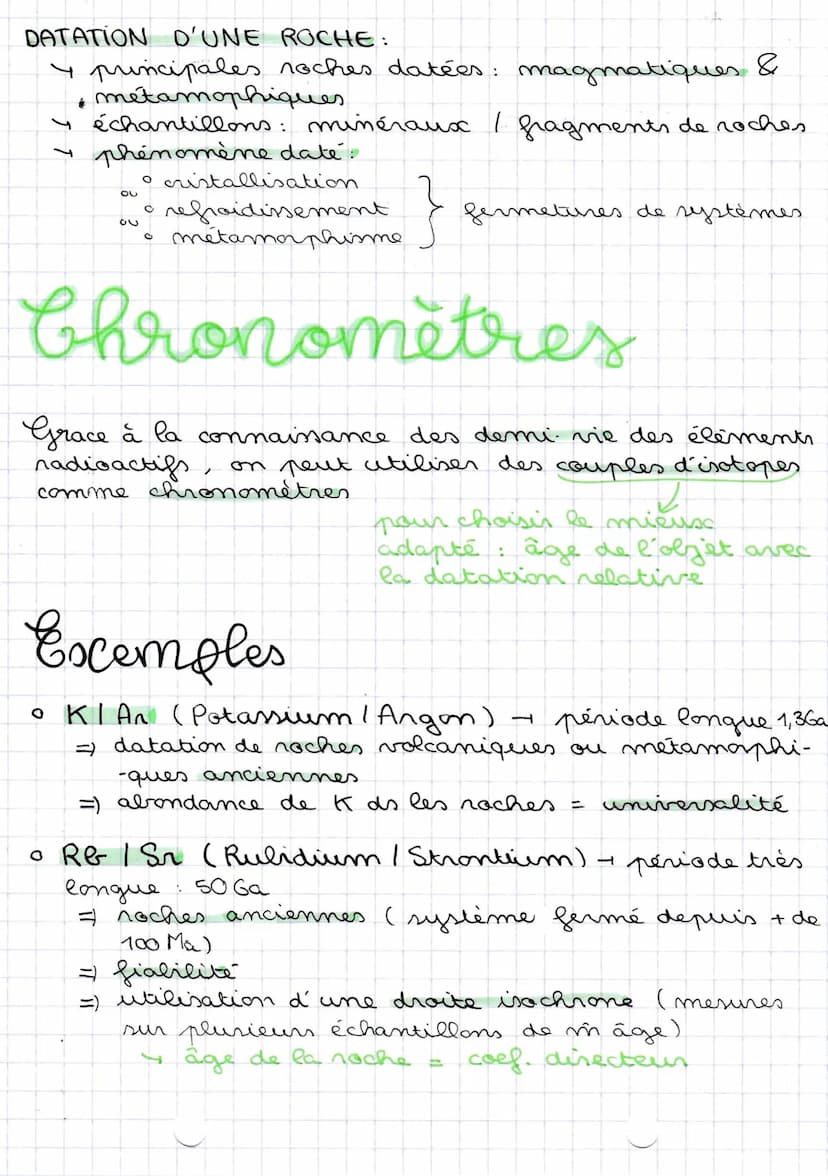 DATATION D'UNE ROCHE :
→ principales roches datées : magmatiques &
métamophiques
→ échantillons : minéraux / fragments de roches
→ phénomène daté :
° cristallisation
ou
° refroidissement } fermetures de systèmes
ou
° métamorphisme
Chronomètres
Grace à la connaissance des demi-vie des éléments
radioactifs, on peut utiliser des couples d'isotopes
comme chronomètres
pour choisir le mieux
adapté : âge de l'objet avec
la datation relative
Exemples
° K / Ar (Potassium / Argon) → période longue 1,3Ga
=> datation de roches volcaniques ou métamorphi-
-ques anciennes
=> abondance de K ds les roches = universalité
° Rb / Sr (Rubidium / Strontium) → période très
longue : 50 Ga
=> roches anciennes (système fermé depuis + de
100 Ma)
=> fiabilité
=> utilisation d'une droite isochrone (mesures
sur plusieurs échantillons de m̂ âge)
↳ âge de la roche = coef. directeur